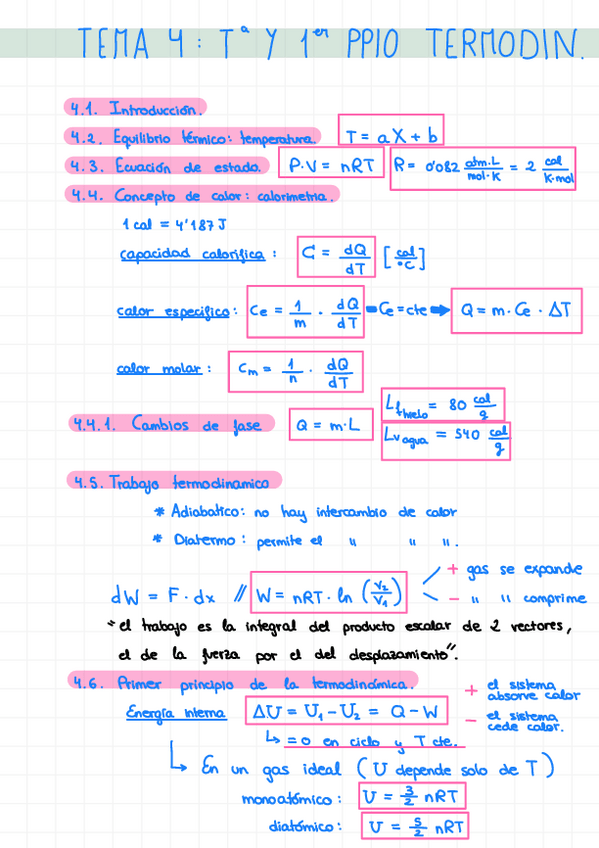 TEMA 4: Tª Y 1er PPIO TERMODIN.
4.1. Introducción.
4.2. Equilibrio térmico: temperatura. T = aX + b
4.3. Ecuación de estado. P·V = nRT R = 0'082 atm.L/mol.K = 2 cal/K.mol
4.4. Concepto de calor: calorimetria.
1 cal = 4'187 J
capacidad calorífica: C = dQ/dT [cal/°C]
calor especifico: Ce = 1/m · dQ/dT Ce = cte → Q = m· Ce · ΔT
calor molar: Cm = 1/n · dQ/dT
4.4.1. Cambios de fase Q = m·L Lf hielo = 80 cal/g
Lv agua = 540 cal/g
4.5. Trabajo termodinamico
* Adiabatico: no hay intercambio de calor
* Diatermo: permite el " " ".
dW = F · dx // W = nRT · ln (V2/V1) + gas se expande
- " " comprime
"el trabajo es la integral del producto escalar de 2 vectores,
el de la fuerza por el del desplazamiento".
4.6. Primer principio de la termodinámica. + el sistema absorve calor
Energía interna ΔU = U1 - U2 = Q - W - el sistema cede calor.
↳ = 0 en ciclo y T cte.
↳ En un gas ideal (U depende solo de T)
monoatómico: U = 3/2 nRT
diatómico: U = 5/2 nRT